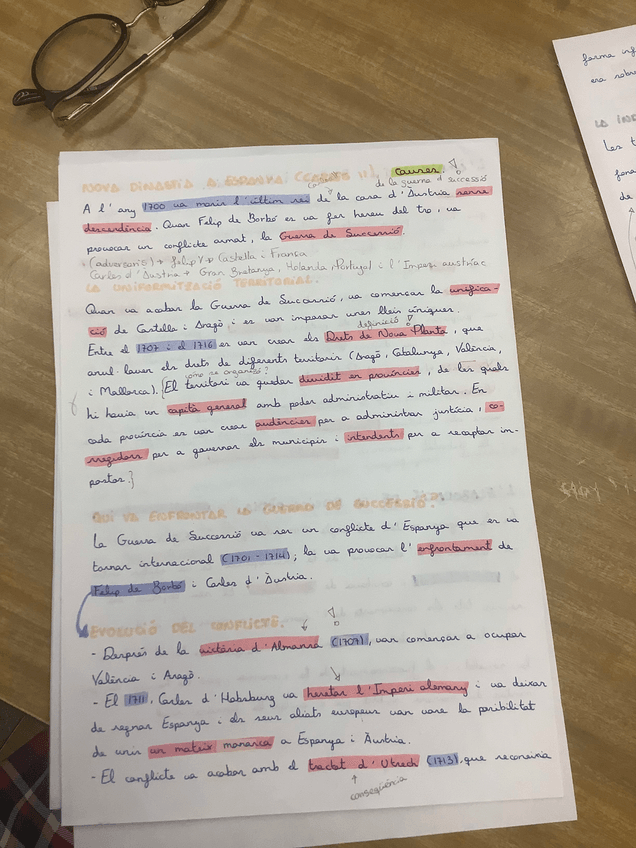 NOVA DINASTIA A ESPANYA causes.
de la guerra d'successió
A l'any 1700 va morir l'últim rei de la casa d'Àustria sense
descendència. Quan Felip de Borbó es va fer hereu del tro, va
provocar un conflicte armat, la Guerra de Successió.
(adversaris) → Felip V → Castella i França
Carles d'Àustria → Gran Bretanya, Holanda, Portugal i l'Imperi austríac
LA UNIFORMITZACIÓ TERRITORIAL.
Quan va acabar la Guerra de Successió, va començar la unifica-
ció de Castella i Aragó, i es van imposar unes lleis úniques.
definició
Entre el 1707 i el 1716 es van crear els Drets de Nova Planta, que
anul·laven els drets de diferents territoris (Aragó, Catalunya, València,
como se organizó?
i Mallorca). [El territori va quedar dividit en províncies, de les quals
hi havia un capità general amb poder administratiu i militar. En
cada província es van crear audiències per a administrar justícia, co-
rregidors per a governar els municipis i intendents per a recaptar im-
postos.]
QUI VA ENFRONTAR LA GUERRA DE SUCCESSIÓ?
La Guerra de Successió va ser un conflicte d'Espanya que es va
tornar internacional (1701-1714); la va provocar l'enfrontament de
Felip de Borbó i Carles d'Àustria.
EVOLUCIÓ DEL CONFLICTE.
- Després de la victòria d'Almansa (1707), van començar a ocupar
València i Aragó.
- El 1711, Carles d'Habsburg va heretar l'Imperi alemany i va deixar
de regnar Espanya i els seus aliats europeus van vore la posibilitat
de unir un mateix monarca a Espanya i Àustria.
- El conflicte va acabar amb el tractat d'Utrech (1713), que reconeixia
conseqüència
forma
era sobre
LA IN
Les t
de